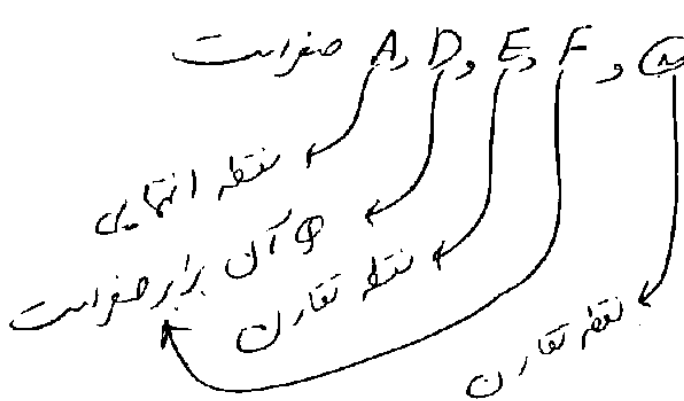 و F و E و D و A صفر است
نقطه انتهایی
φ آن برابر صفر است
نقطه تقارن
نقطه تقارن